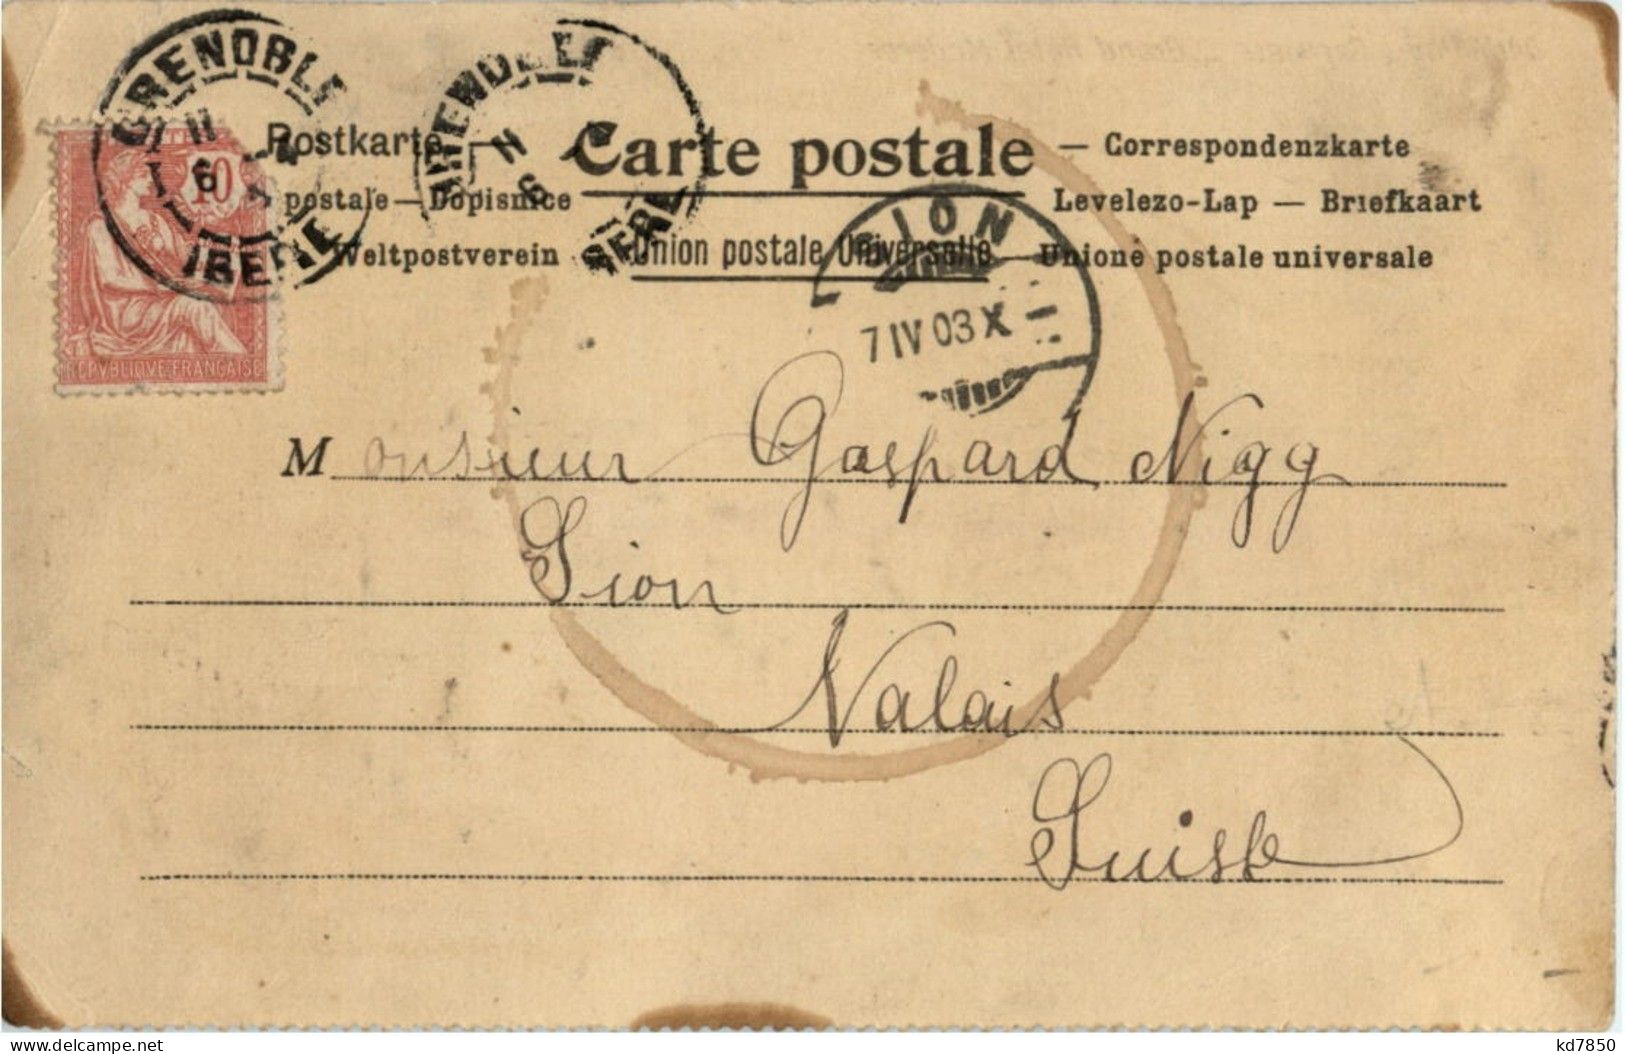 GRENOBLE
ISERE
GRENOBLE
ISERE
10
REPVBLIQVE FRANÇAISE
Postkarte — Carte postale — Correspondenzkarte
postale — Dopisnice Levelezo-Lap — Briefkaart
Weltpostverein Union postale Universelle Unione postale universale
SION
7 IV 03 X
Monsieur Gaspard Nigg
Sion
Valais
Suisse
kd7850